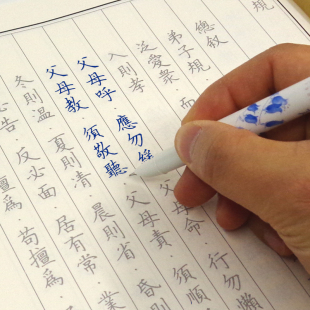 規
總叙
弟子規
泛愛眾·而
入則孝
父母呼·應勿緩·父母命·行勿懶
父母教·須敬聽·父母責·須順
冬則温·夏則凊·晨則省·昏則
必告·反必面·居有常·業
擅為·苟擅為